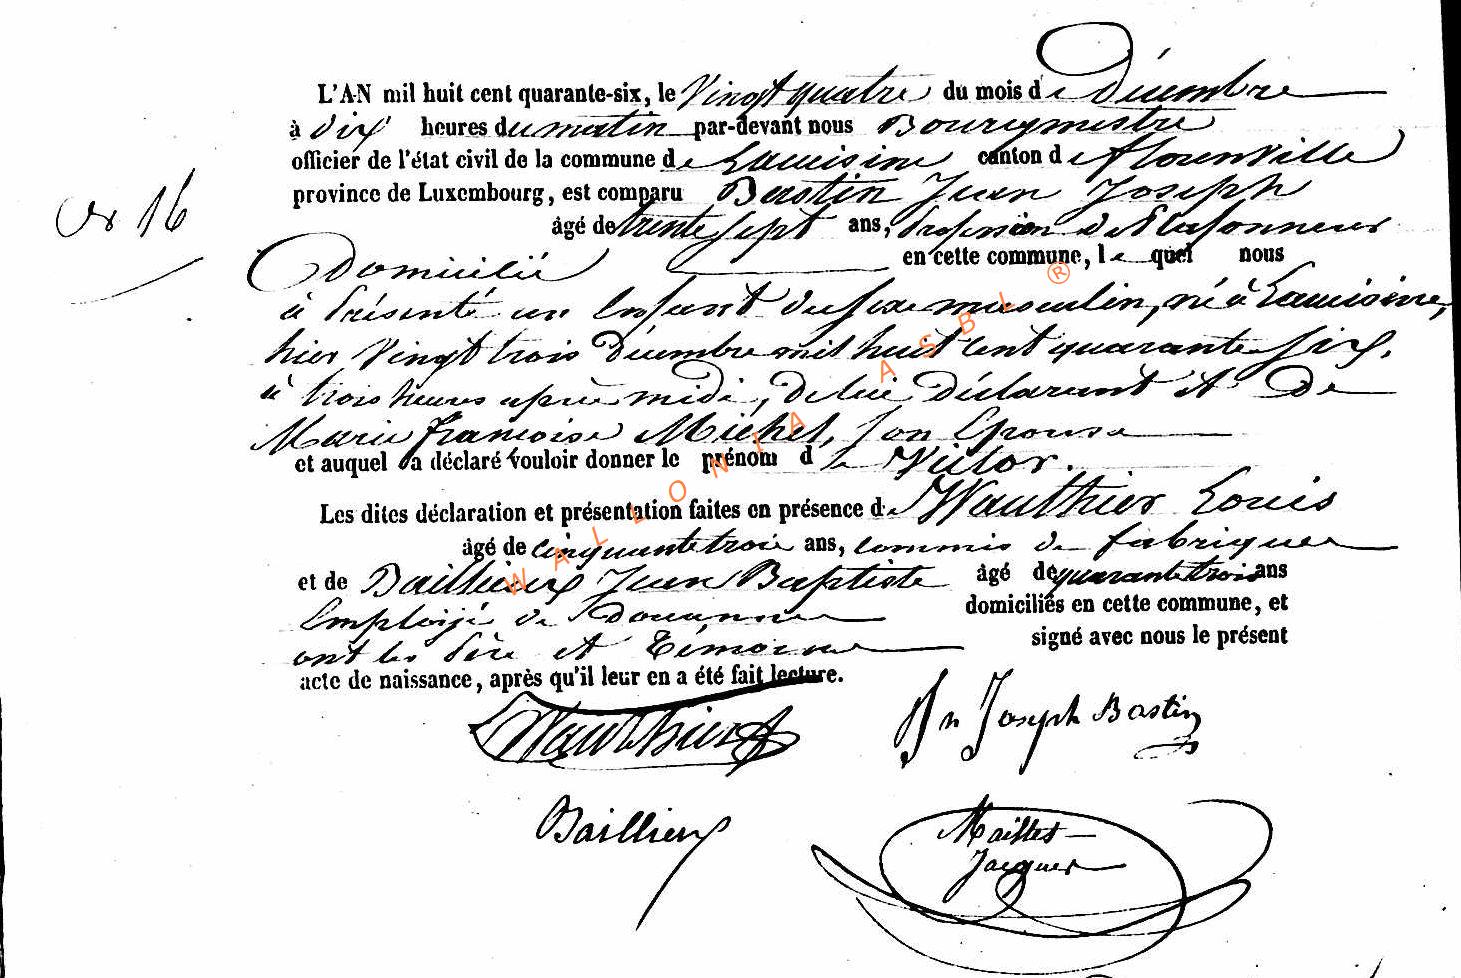 L'AN mil huit cent quarante-six, le Vingt quatre du mois de Décembre
à dix heures du matin par-devant nous Bourgmestre
officier de l'état civil de la commune de Lacuisine canton de Florenville
N° 16
province de Luxembourg, est comparu Bastin Jean Joseph
âgé de trente sept ans, profession de Plafonneur
Domicilié en cette commune, le quel nous
à Présenté un Enfant du sexe masculin, né à Lacuisine,
hier Vingt trois Décembre mil huit cent quarante six,
à trois heures après midi, de lui Déclarant et De
Marie françoise Michel, son Epouse
et auquel a déclaré vouloir donner le prénom de Victor.
Les dites déclaration et présentation faites en présence de Wauthier Louis
âgé de cinquante trois ans, commis de fabrique
et de Baillieux Jean Baptiste âgé de quarante trois ans
Emploijé de Douanne domiciliés en cette commune, et
ont les Père et Témoins signé avec nous le présent
acte de naissance, après qu'il leur en a été fait lecture.
Wauthier Jn Joseph Bastin
Baillieux Maillet
Jacques
WALLONIA ASBL ®